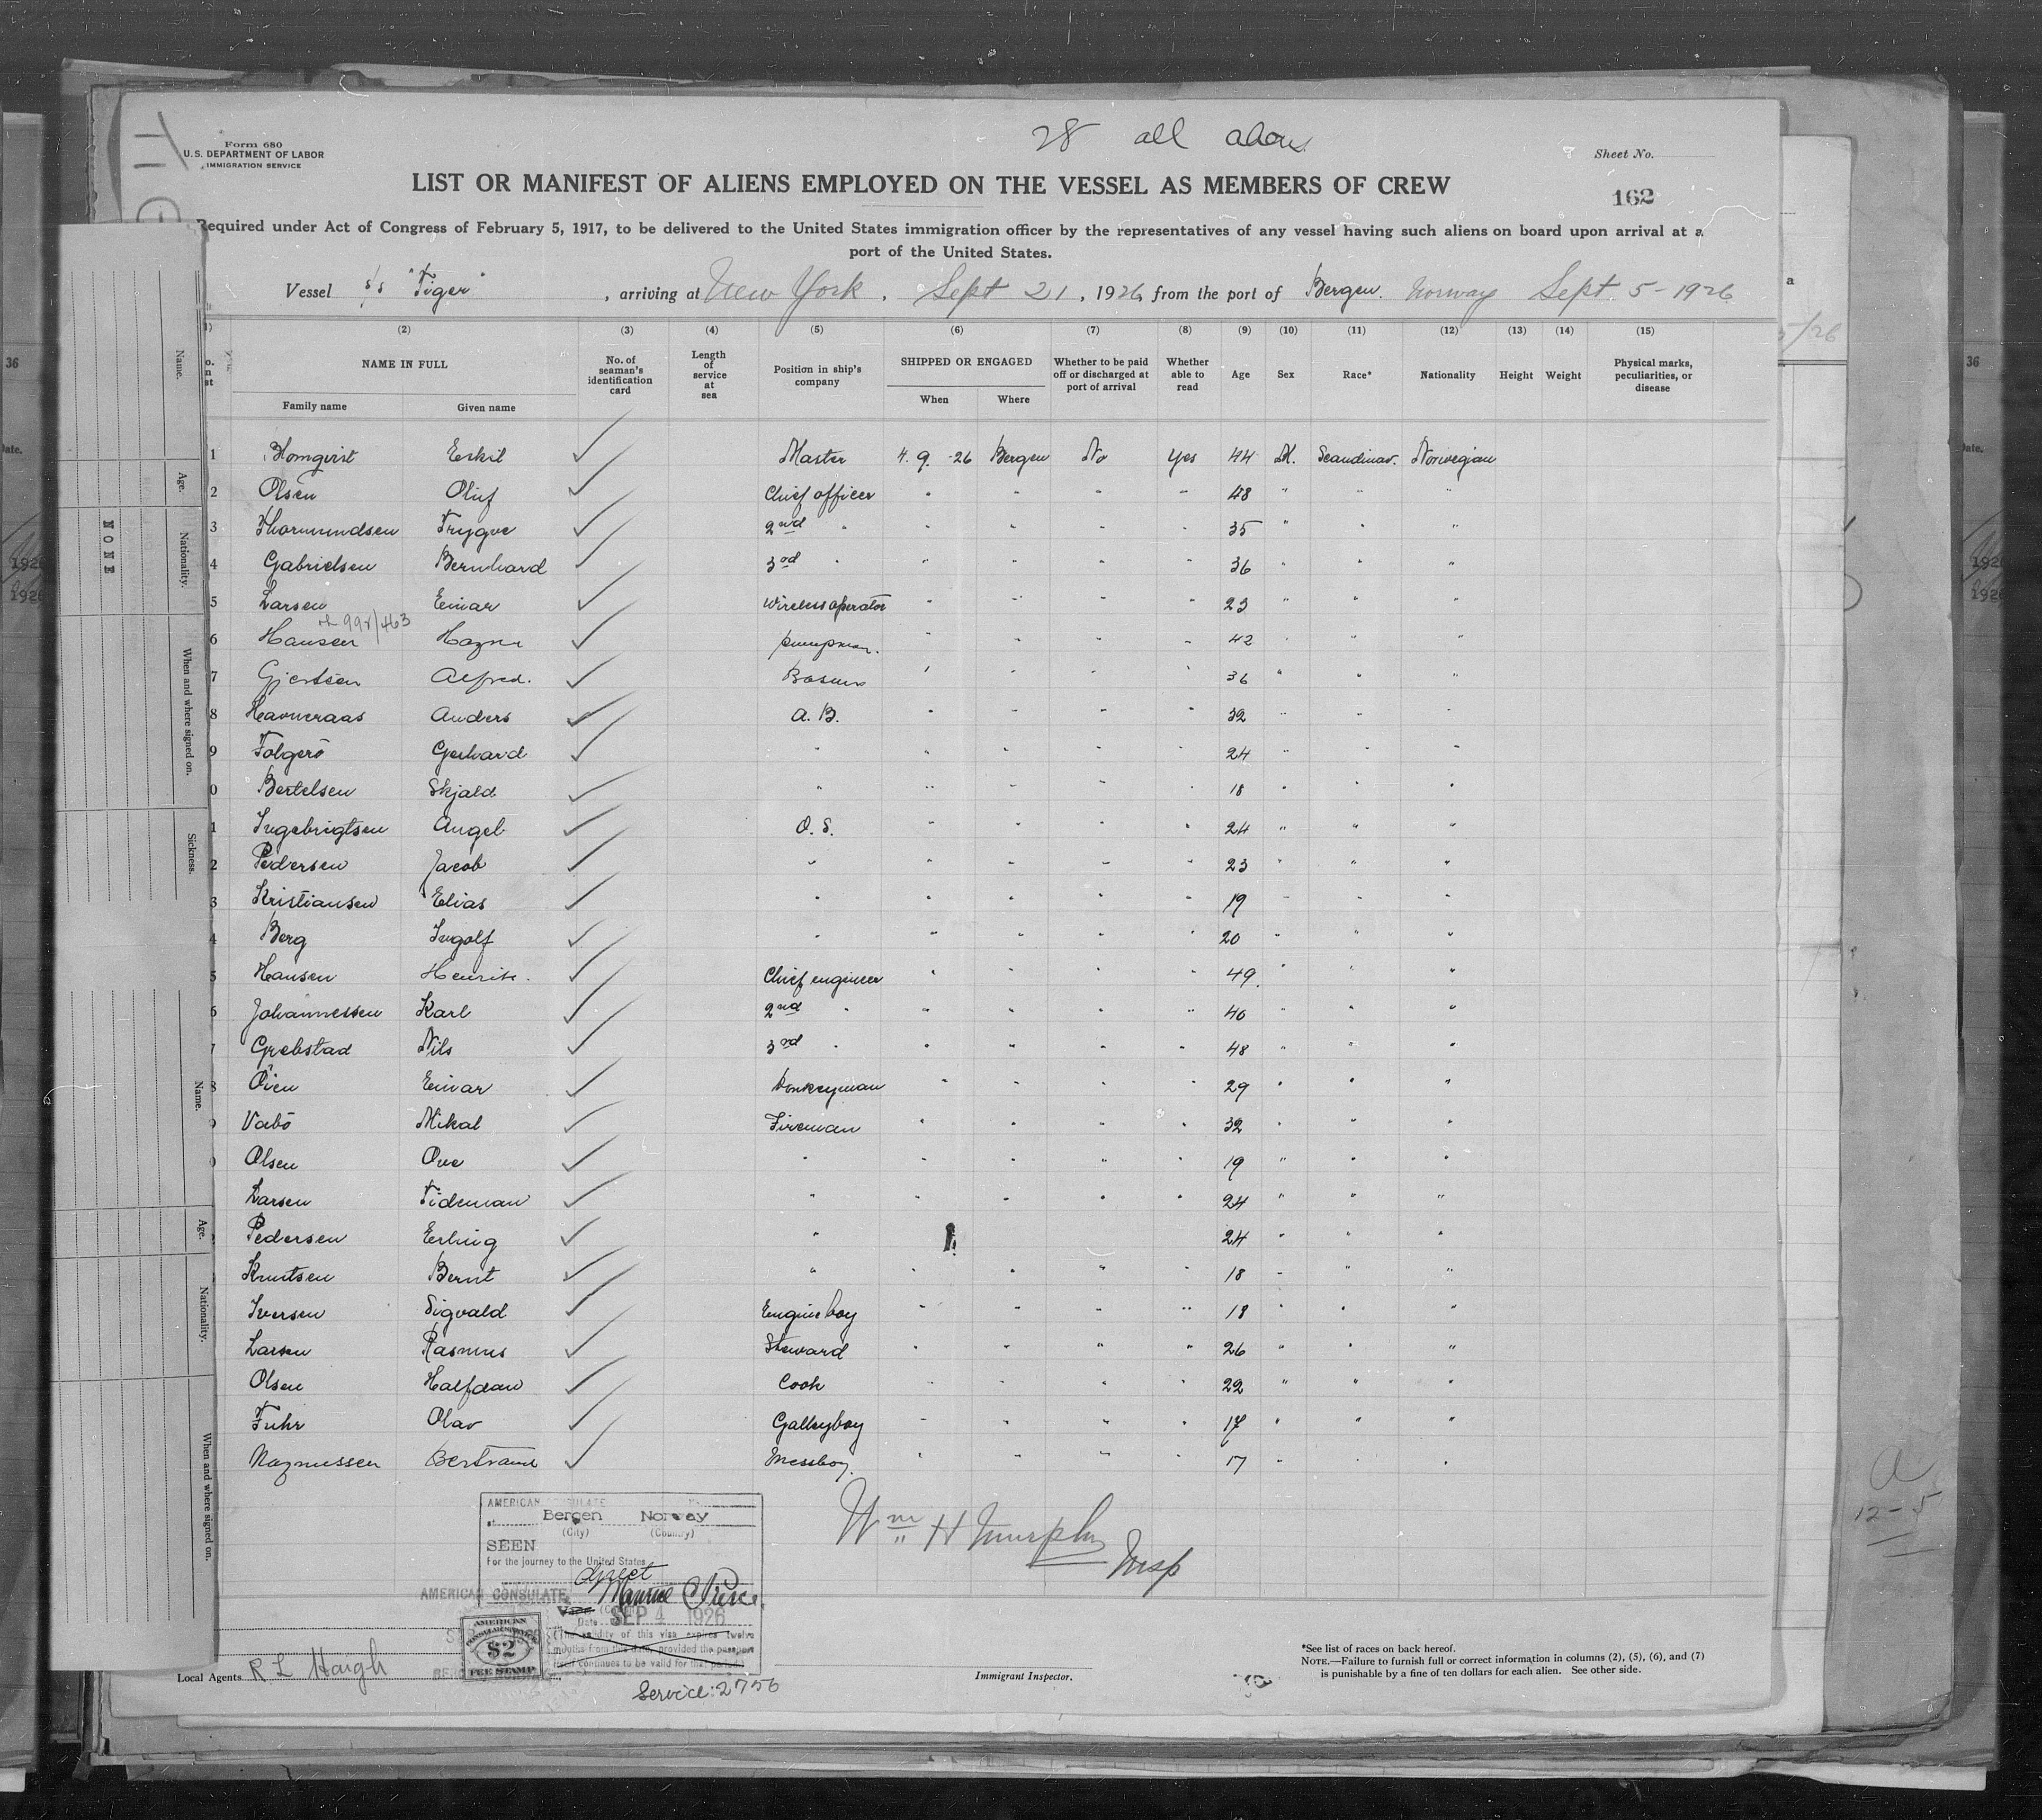 28 all aliens
Form 680
U.S. DEPARTMENT OF LABOR
IMMIGRATION SERVICE
Sheet No.
LIST OR MANIFEST OF ALIENS EMPLOYED ON THE VESSEL AS MEMBERS OF CREW
162
Required under Act of Congress of February 5, 1917, to be delivered to the United States immigration officer by the representatives of any vessel having such aliens on board upon arrival at a
port of the United States.
Vessel s/s "Tiger", arriving at New York, Sept 21, 1926, from the port of Bergen. Norway Sept. 5-1926
(2) (3) (4) (5) (6) (7) (8) (9) (10) (11) (12) (13) (14) (15)
NAME IN FULL
Family name Given name
No. of seaman's identification card
Length of service at sea
Position in ship's company
SHIPPED OR ENGAGED
When Where
Whether to be paid off or discharged at port of arrival
Whether able to read
Age Sex Race* Nationality Height Weight
Physical marks, peculiarities, or disease
1 Blomqvist Eskil Master 4. 9. -26 Bergen No Yes 44 M. Scandinav. Norwegian
2 Olsen Oluf Chief officer " " " " 48 " " "
3 Thormundsen Trygve 2nd " " " " " 35 " " "
4 Gabrielsen Bernhard 3rd " " " " " 36 " " "
5 Larsen Einar Wireless operator " " " " 23 " " "
99r/463
6 Hansen Hagni pumpman. " " " " 42 " " "
7 Gjertsen Alfred. Bosun " " " " 36 " " "
8 Havneraas Anders A. B. " " " " 32 " " "
9 Folgerö Gerhard " " " " " 24 " " "
0 Bertelsen Skjald " " " " " 18 " " "
1 Ingebrigtsen Angel O. S. " " " " 24 " " "
2 Pedersen Jacob " " " " " 23 " " "
3 Kristiansen Elias " " " " " 19 " " "
4 Berg Ingolf " " " " " 20 " " "
5 Hansen Henrik. Chief engineer " " " " 49. " " "
6 Johannessen Karl 2nd " " " " " 40 " " "
7 Grebstad Nils 3rd " " " " " 48 " " "
8 Öien Einar Donkeyman " " " " 29 " " "
9 Vabö Mikal Fireman " " " " 32 " " "
0 Olsen Ove " " " " " 19 " " "
Larsen Tideman " " " " " 24 " " "
Pedersen Erling " 24 " " "
Knutsen Bernt " " " " " 18 " " "
Iversen Sigvald Engine boy " " " " 18 " " "
Larsen Rasmus Steward " " " " 26 " " "
Olsen Halfdan Cook " " " " 22 " " "
Fuhr Olav Galleyboy " " " " 17 " " "
Magnussen Bertram Messboy. " " " " 17 " " "
AMERICAN CONSULATE
Bergen Norway
(City) (Country)
SEEN
For the journey to the United States
direct
AMERICAN CONSULATE
Date SEP 4 1926
(The validity of this visa expires twelve
months from this date, provided the passport
itself continues to be valid for that period)
AMERICAN
$2
FEE STAMP
Wm H Murphy
Insp
Local Agents R L Haugh
Service: 2756
Immigrant Inspector.
*See list of races on back hereof.
NOTE.—Failure to furnish full or correct information in columns (2), (5), (6), and (7)
is punishable by a fine of ten dollars for each alien. See other side.
Name.
Age.
Nationality.
NONE
When and where signed on.
Sickness.
Name.
Age.
Nationality.
When and where signed on.
36
Date.
1926
1926
5/26
a
12-5
36
Date.
1926
1926